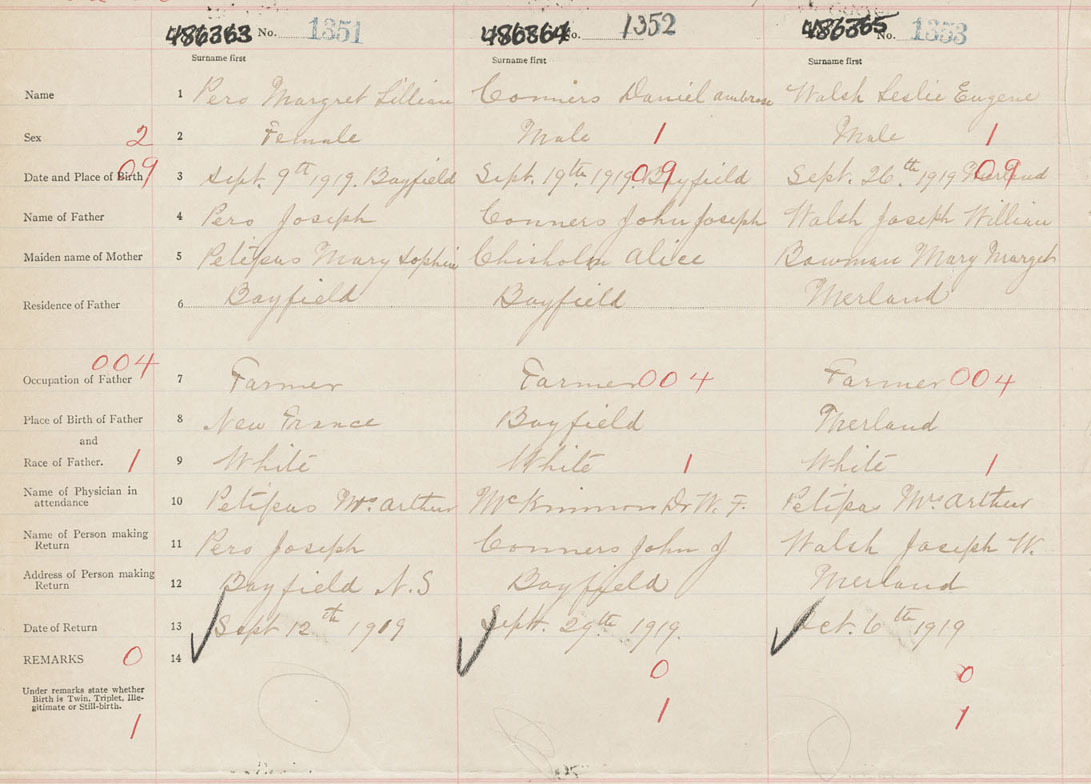 486363 No. 1351 486364 No. 1352 486365 No. 1353
Surname first Surname first Surname first
Name 1 Pero Margret Lillian Conners Daniel ambrose Walsh Leslie Eugene
Sex 2 2 Female Male 1 Male 1
Date and Place of Birth 09 3 Sept. 9th 1919. Bayfield Sept. 19th. 1919 09 Bayfield Sept. 26th 1919 09 Merland
Name of Father 4 Pero Joseph Conners John Joseph Walsh Joseph William
Maiden name of Mother 5 Petipas Mary Sophia Chisholm Alice Bowman Mary Margret
Residence of Father 6 Bayfield Bayfield Merland
004
Occupation of Father 7 Farmer Farmer 004 Farmer 004
Place of Birth of Father 8 New France Bayfield Merland
and
Race of Father. 1 9 White White 1 White 1
Name of Physician in
attendance 10 Petipas Mrs Arthur McKinnon Dr W. F. Petipas Mrs Arthur
Name of Person making
Return 11 Pero Joseph Conners John J Walsh Joseph W.
Address of Person making
Return 12 Bayfield N.S Bayfield Merland
Date of Return 13 Sept 12th 1919 Sept. 29th 1919. Oct. 6th 1919
REMARKS 0 14 0 0
Under remarks state whether
Birth is Twin, Triplet, Ille-
gitimate or Still-birth.
1 1 1